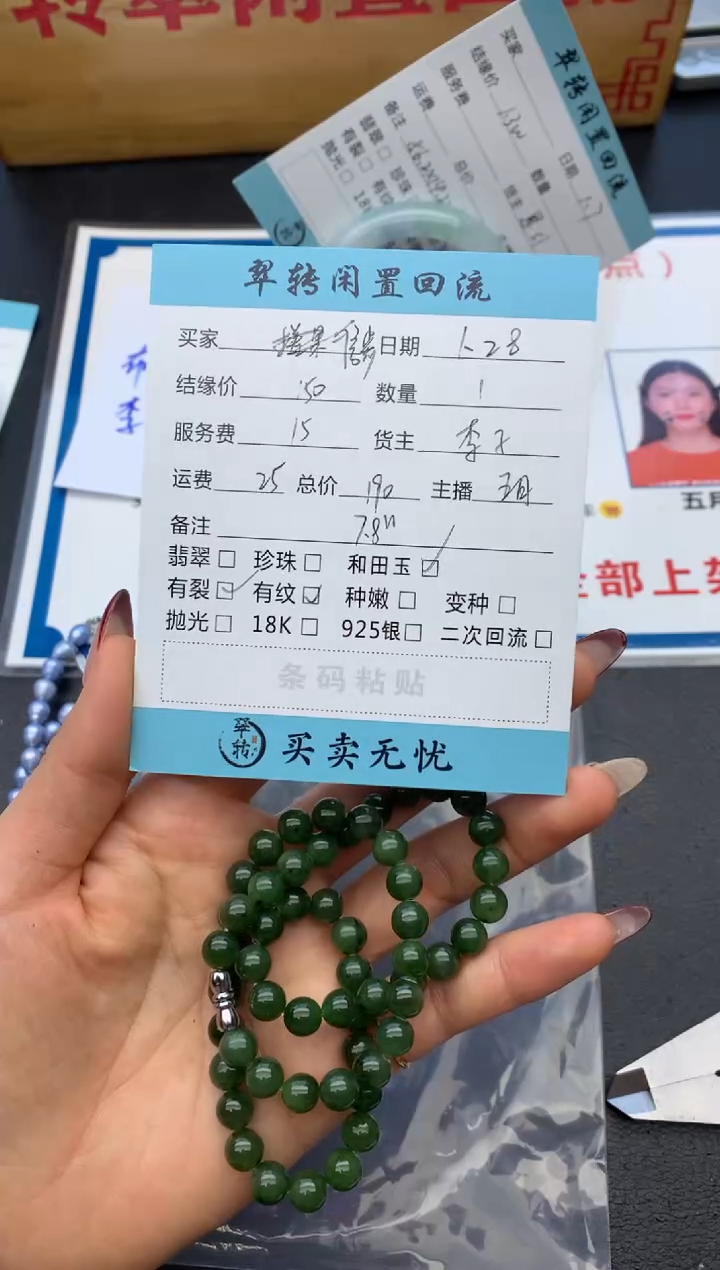 翠转闲置回流
买家 日期 1.28
结缘价 150 数量 1
服务费 15 货主 李子
运费 25 总价 190 主播 五月
备注 7.8
翡翠□ 珍珠□ 和田玉☑
有裂☑ 有纹☑ 种嫩□ 变种□
抛光□ 18K□ 925银□ 二次回流□
条码粘贴
翠转 买卖无忧
翠转闲置回流
买家 日期 1.7
结缘价 数量
服务费
运费 总价
备注
翡翠□ 珍珠
有裂□
抛光□
点）
李
五月
全部上架